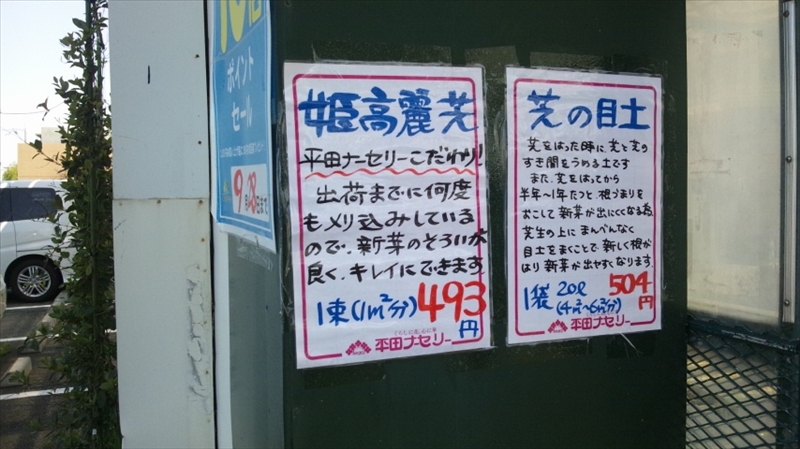 ポイント
セール
姫高麗芝
平田ナーセリーこだわり!
出荷までに何度
もメリ込みしている
ので、新芽のそろいが
良く、キレイにできます
1束(1m²分)493円
平田ナーセリー
芝の目土
芝をはった時に芝と芝の
すき間をうめる土です
また、芝をはってから
半年～1年たつと、根づまりを
おこして新芽が出にくくなる為、
芝生の上にまんべんなく
目土をまくことで新しく根が
はり新芽が出やすくなります
1袋 20ℓ (4㎡～6㎡分) 504円
平田ナーセリー